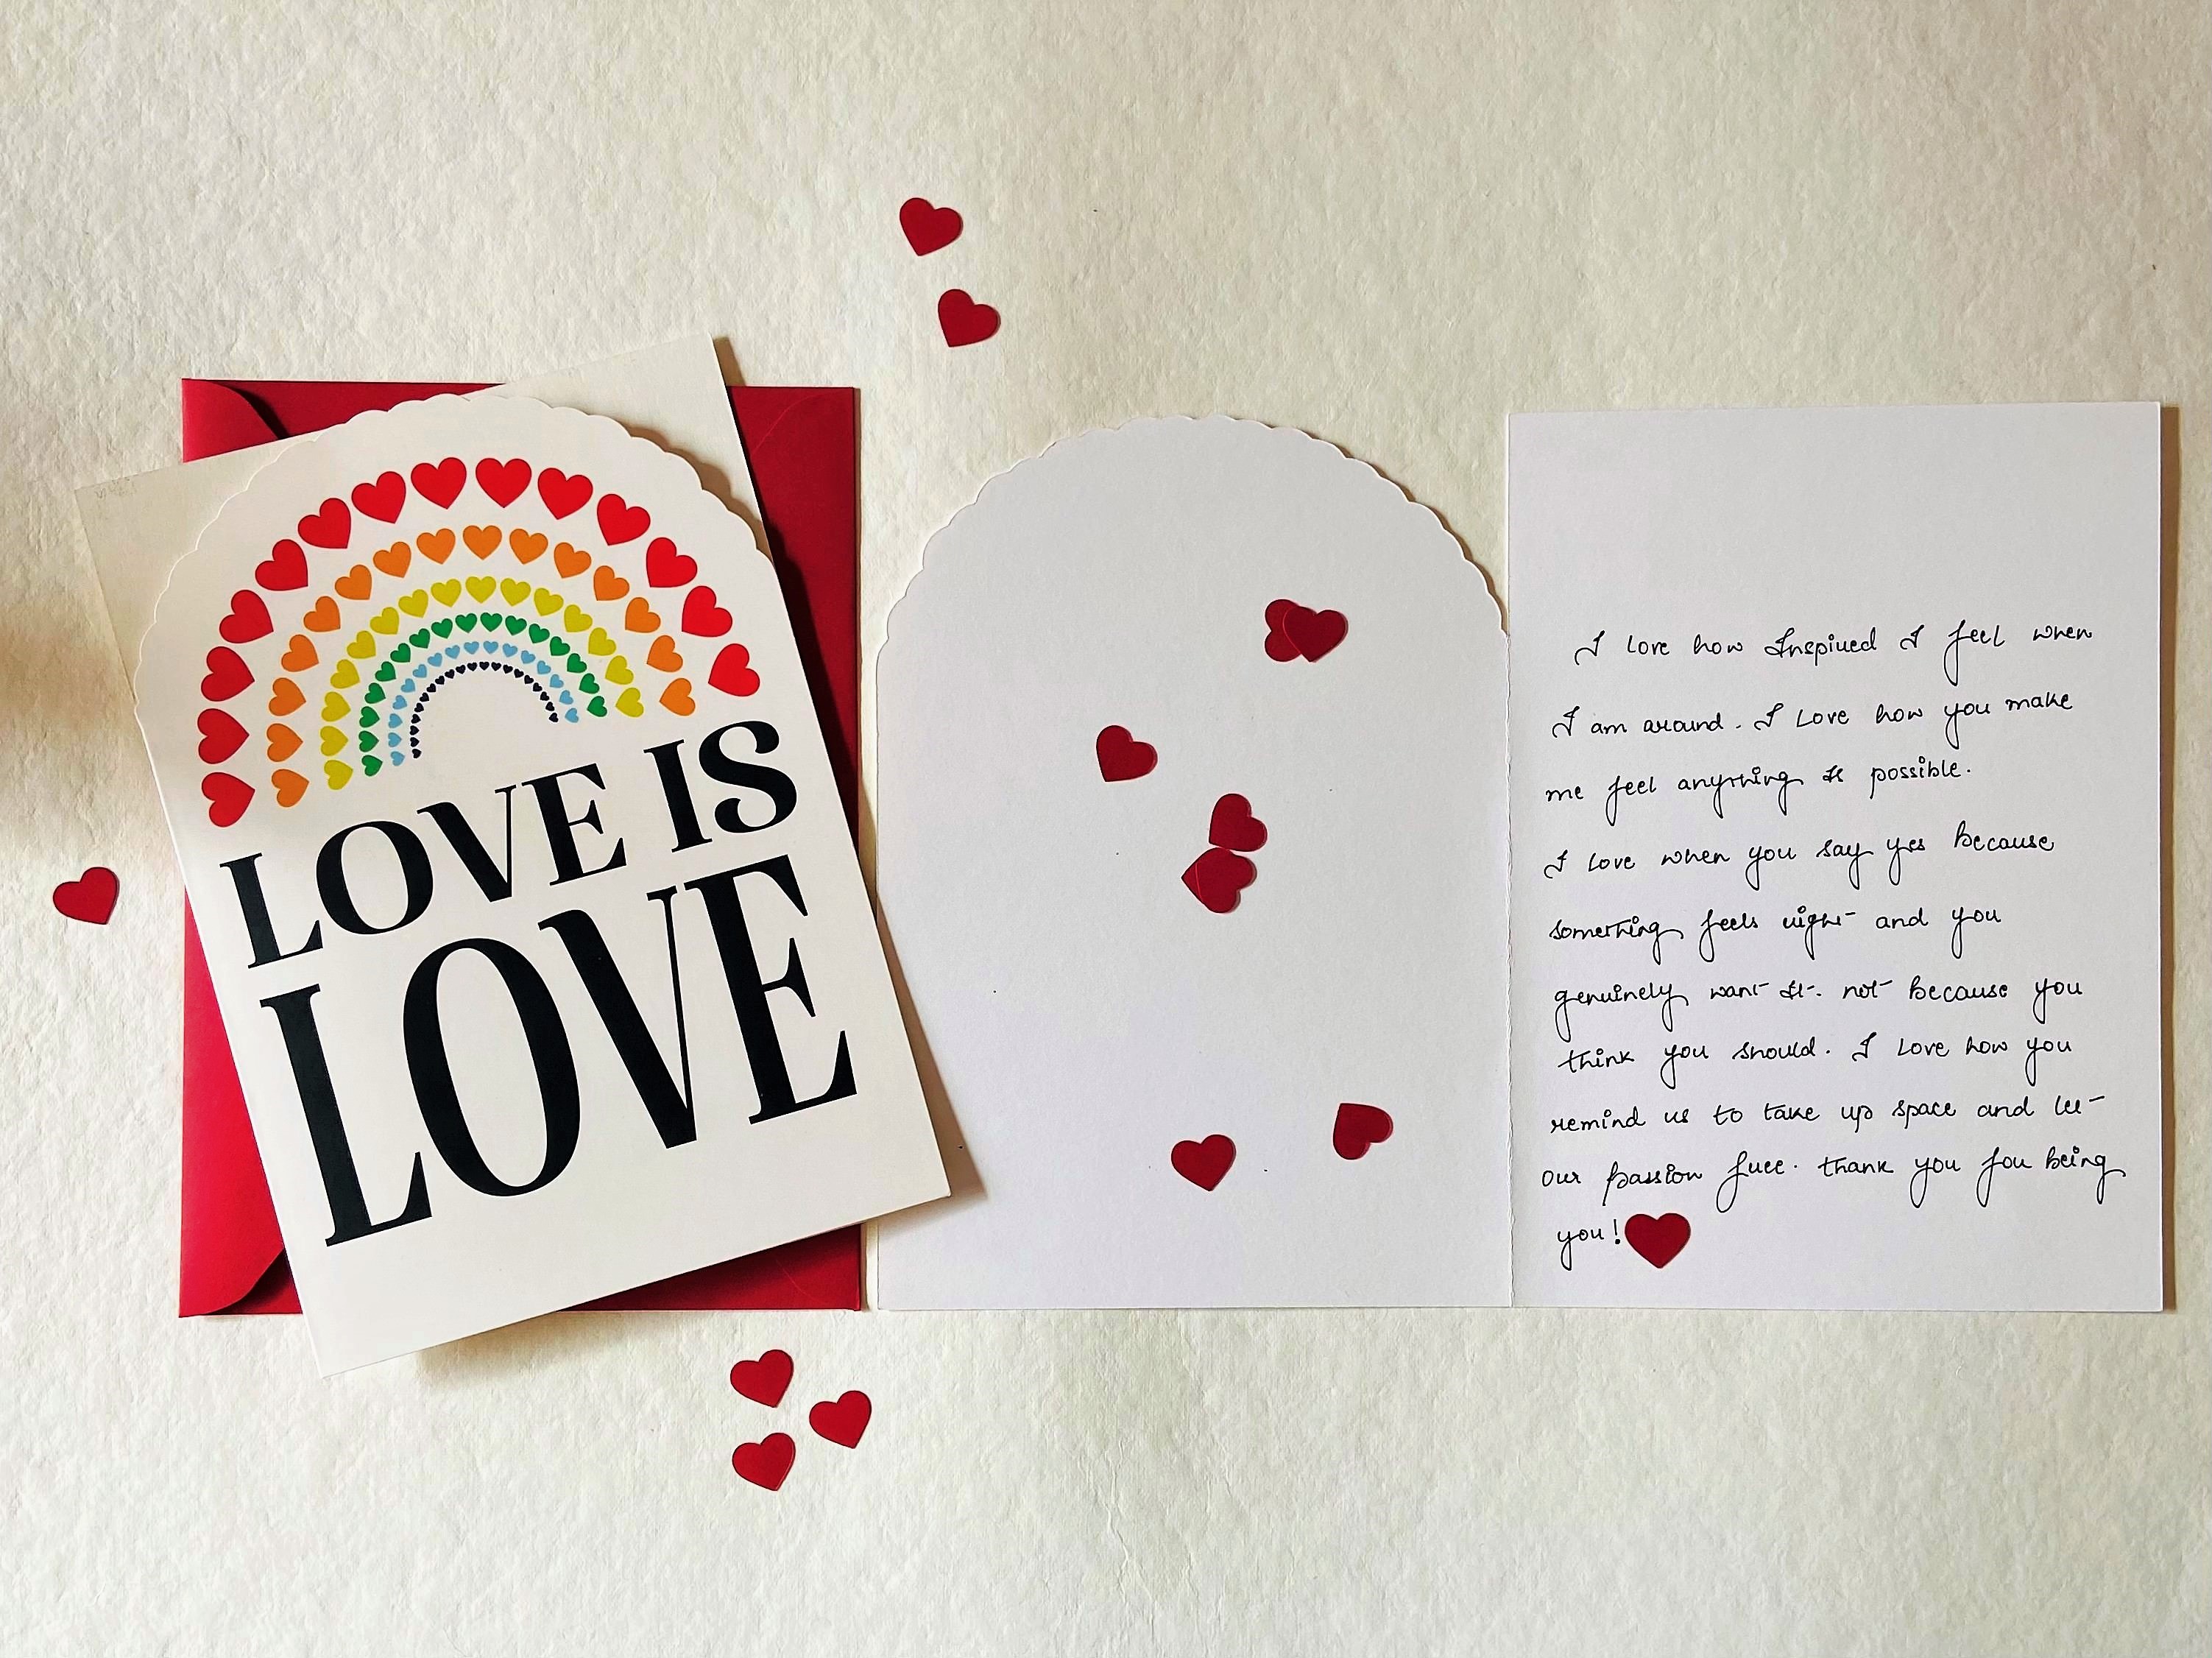 LOVE IS
LOVE
I love how Inspired I feel when
I am around. I Love how you make
me feel anything Is possible.
I love when you say yes because
something feels right and you
genuinely want It. not because you
think you should. I Love how you
remind us to take up space and let
our passion free. thank you for being
you!